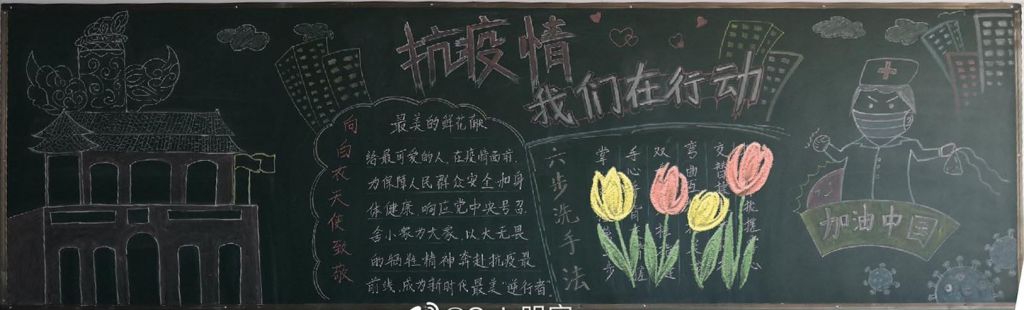 抗疫情
我们在行动
向白衣天使致敬
最美的鲜花献
给最可爱的人,在疫情面前,
为保障人民群众安全和身
体健康,响应党中央号召
舍小家为大家,以大无畏
的牺牲精神奔赴抗疫最
前线,成为新时代最美"逆行者"
六步洗手法
加油中国